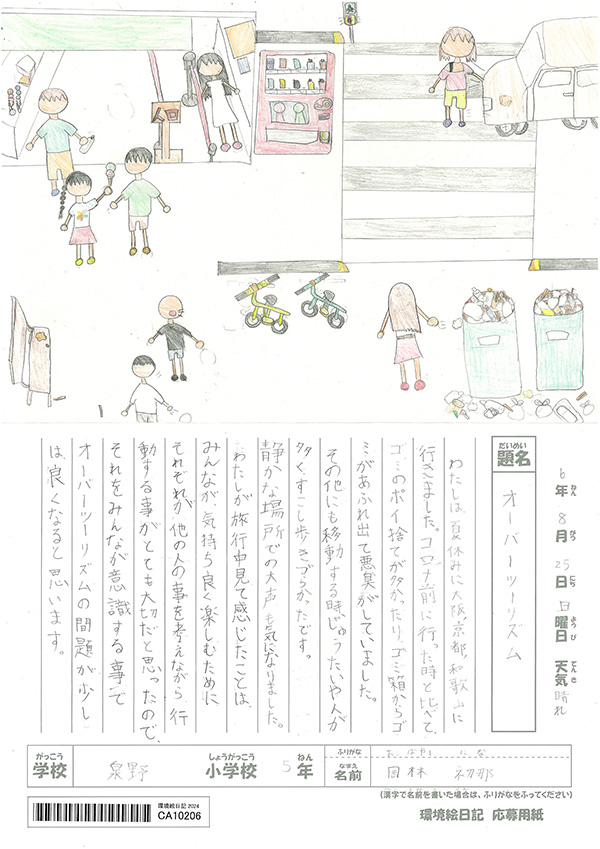 6年 8月 25日 日曜日 天気 晴れ
ねん がつ にち ようび てんき
だいめい
題名
オーバーツーリズム
わたしは、夏休みに大阪、京都、和歌山に
行きました。コロナ前に行った時と比べて、
ゴミのポイ捨てが多かったり、ゴミ箱からゴ
ミがあふれ出て悪臭がしていました。
その他にも移動する時じゅうたいや人が
多く、すこし歩きづらかったです。
静かな場所での大声も気になりました。
わたしが旅行中見て感じたことは、
みんなが、気持ち良く楽しむために
それぞれが他の人の事を考えながら行
動する事がとても大切だと思ったので、
それをみんなが意識する事で
オーバーツーリズムの問題が少し
は良くなると思います。
がっこう しょうがっこう ねん
学校 泉野 小学校 5年
ふりがな
なまえ
名前 林 初那
(漢字で名前を書いた場合は、ふりがなをふってください)
環境絵日記 2024
CA10206
環境絵日記 応募用紙